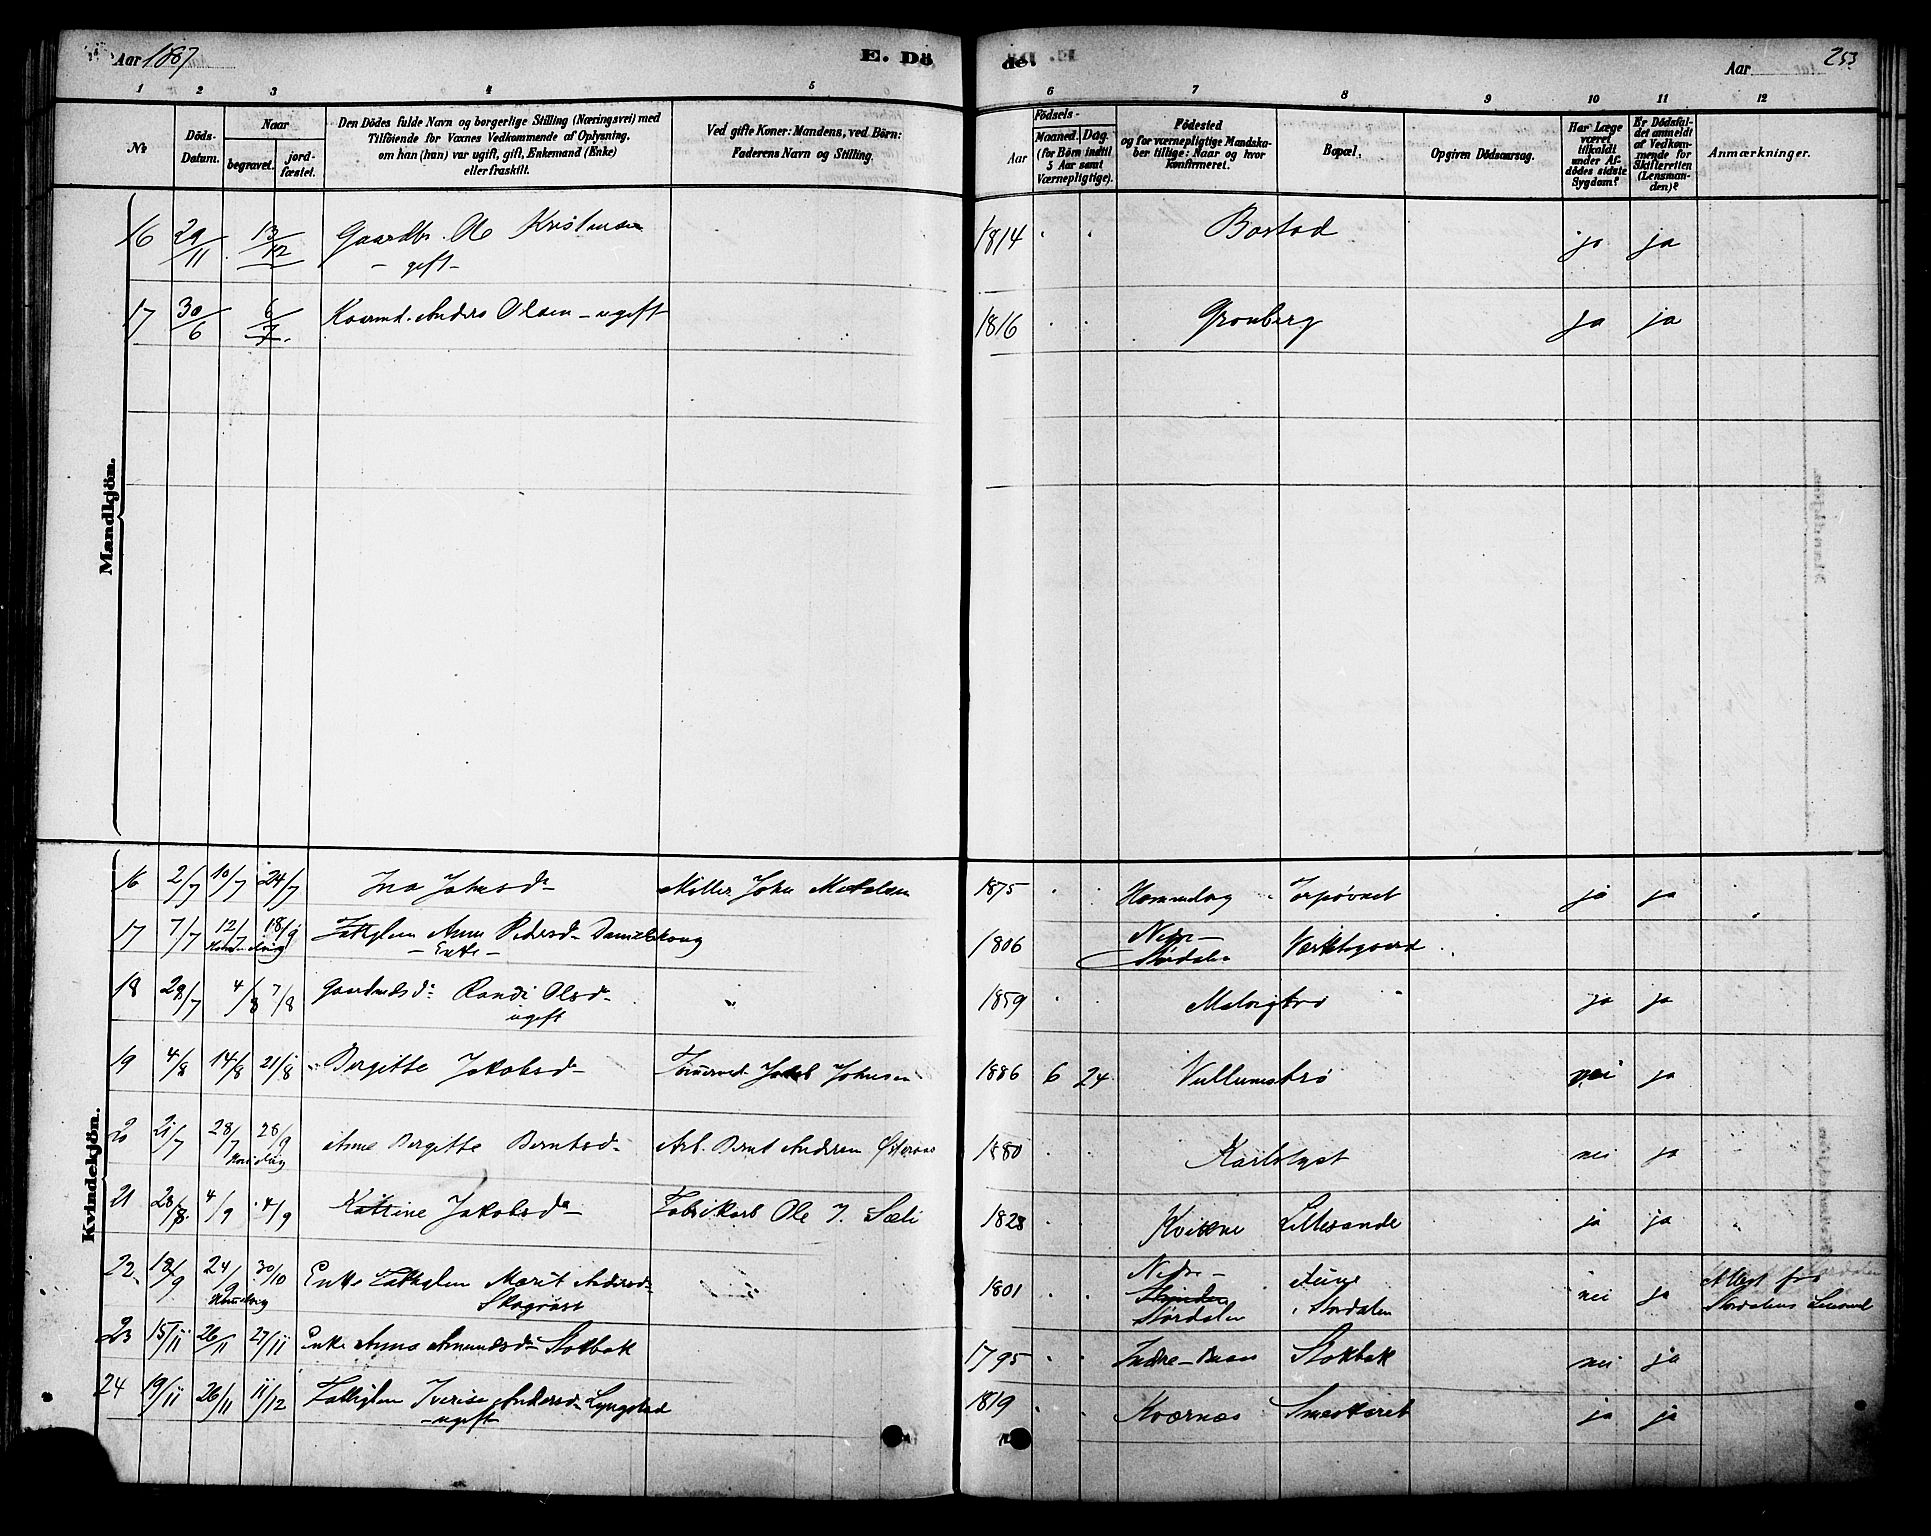 Aar 1887
E. Dö
de.
Aar
253
1 2 3 4 5 6 7 8 9 10 11 12
№
Döds-
Datum.
Naar
begravet.
jord-
fæstet.
Den Dödes fulde Navn og borgerlige Stilling (Næringsvei) med
Tilföiende for Voxnes Vedkommende af Oplysning.
om han (hun) var ugift, gift, Enkemand (Enke)
eller fraskilt.
Ved gifte Koner: Mandens, ved Börn:
Faderens Navn og Stilling.
Födsels-
Aar
Maaned. Dag.
(for Börn indtil
5 Aar samt
Værnepligtige).
Födested
og for værnepligtige Mandska-
ber tillige: Naar og hvor
konfirmeret.
Bopæl.
Opgiven Dödsaarsag.
Har Læge
været
tilkaldt
under Af-
dödes sidste
Sygdom?
Er Dödsfal-
det anmeldt
af Vedkom-
mende for
Skifteretten
(Lensman-
den)?
Anmærkninger.
Mandkjön.
16 29/11 13/12 Gaardbr. Ole Kristensen 1814 Bostad ja ja
- gift -
17 30/6 6/7 Kaarmd. Anders Olsen - ugift 1816 Gronberg ja ja
Kvindekjön.
16 2/7 10/7 24/7 Ina Johnsd. Møller John 1875 Hommelvig ja ja
17 7/7 12/7 18/9 Fattiglem Anne Pedersd. 1806 Nedre-
Hommelvig - Enke - Størdalen
18 28/7 4/8 7/8 Gaardmdsd. Randi Olsd. 1859 ja ja
ugift
19 4/8 14/8 21/8 Bergitte Jakobsd. Jakob Johnsen 1886 6 24 nei ja
20 21/7 28/7 28/9 Anne Bergitte Berntsd. Arb. Bernt Andersen 1880 Karlslyst nei ja
Hommelvig
21 28/8 4/9 4/9 Katrine Jakobsd. Fabrikarb Ole J. Sæli 1828 Kvikne Lillesande ja ja
22 18/9 24/9 30/10 Enke Fattiglem Marit Andersd. 1801 Nedre- nei ja
Hommelvig Størdalen i Stordalen Stordalens
23 15/11 26/11 27/11 Enke Anna Amundsd. Stokbak 1795 Indre- Stokbak nei ja
24 19/11 26/11 11/12 Fattiglem Andersd. 1819 Kværnæs ja ja
- ugift -